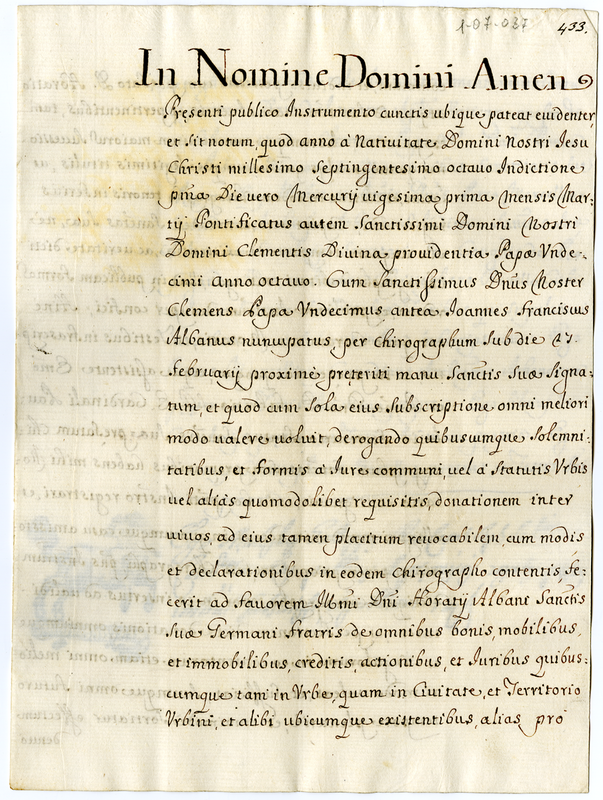 1-07-037
433.
In Nomine Domini Amen
Presenti publico Instrumento cunctis ubique pateat euidenter,
et sit notum, quod anno à Natiuitate Domini Nostri Iesu
Christi millesimo septingentesimo octauo Indictione
pma Die uero Mercurij uigesima prima Mensis Mar:
tij Pontificatus autem Sanctissimi Domini Nostri
Domini Clementis Diuina prouidentia Papæ Vnde:
cimi anno octauo. Cum Sanctissimus Dnus Noster
Clemens Papa Vndecimus antea Ioannes Franciscus
Albanus nuncupatus, per Chirographum sub die 27.
Februarij proximè præteriti manu Sanctis suæ signa:
tum, et quod cum sola eius subscriptione omni meliori
modo ualere uoluit, derogando quibuscumque solemni:
tatibus, et formis à Iure communi, uel à Statutis Vrbis
uel aliàs quomodolibet requisitis, donationem inter
uiuos, ad eius tamen placitum reuocabilem, cum modis
et declarationibus in eodem Chirographo contentis, fe:
cerit ad fauorem Illmi Dni Horatij Albani Sanctis
suæ Germani fratris de omnibus bonis, mobilibus,
et immobilibus, creditis, actionibus, et Iuribus quibus:
cumque tam in Vrbe, quam in Ciuitate, et Territorio
Vrbini, et alibi ubicumque existentibus, alias prò